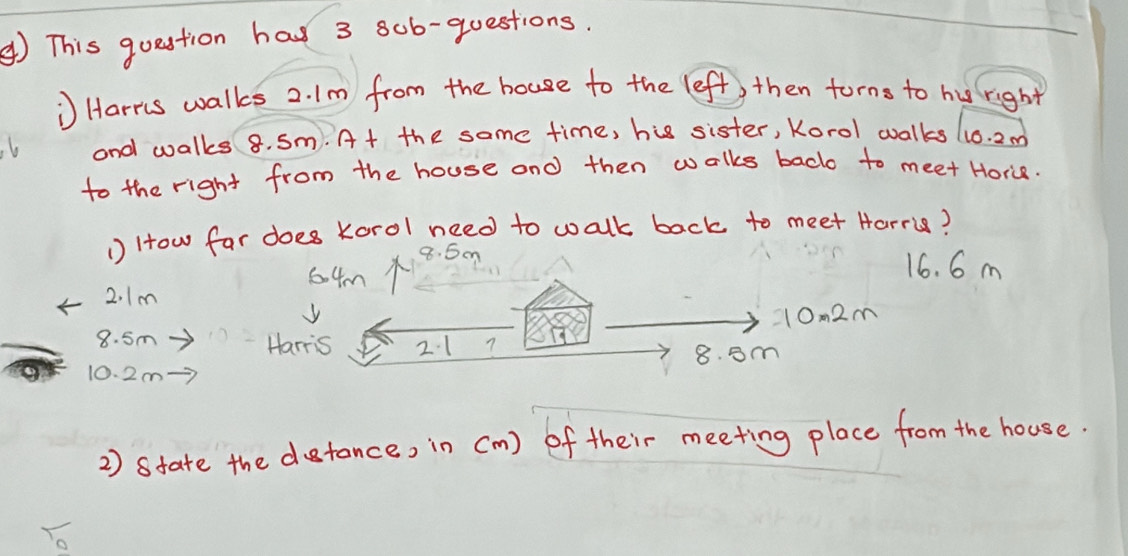 g) This question has 3 sub-questions.
i) Harris walks 2.1m from the house to the left, then turns to his right
and walks 8.5m. At the same time, his sister, Karol walks 10.2m
to the right from the house and then walks back to meet Horis.
1) How far does Karol need to walk back to meet Harris?
8.5m
6.4m
16.6 m
← 2.1m
10.2m
8.5m →
Harris
2.1 ?
8.5m
10.2m →
2) State the distance, in (m) of their meeting place from the house.